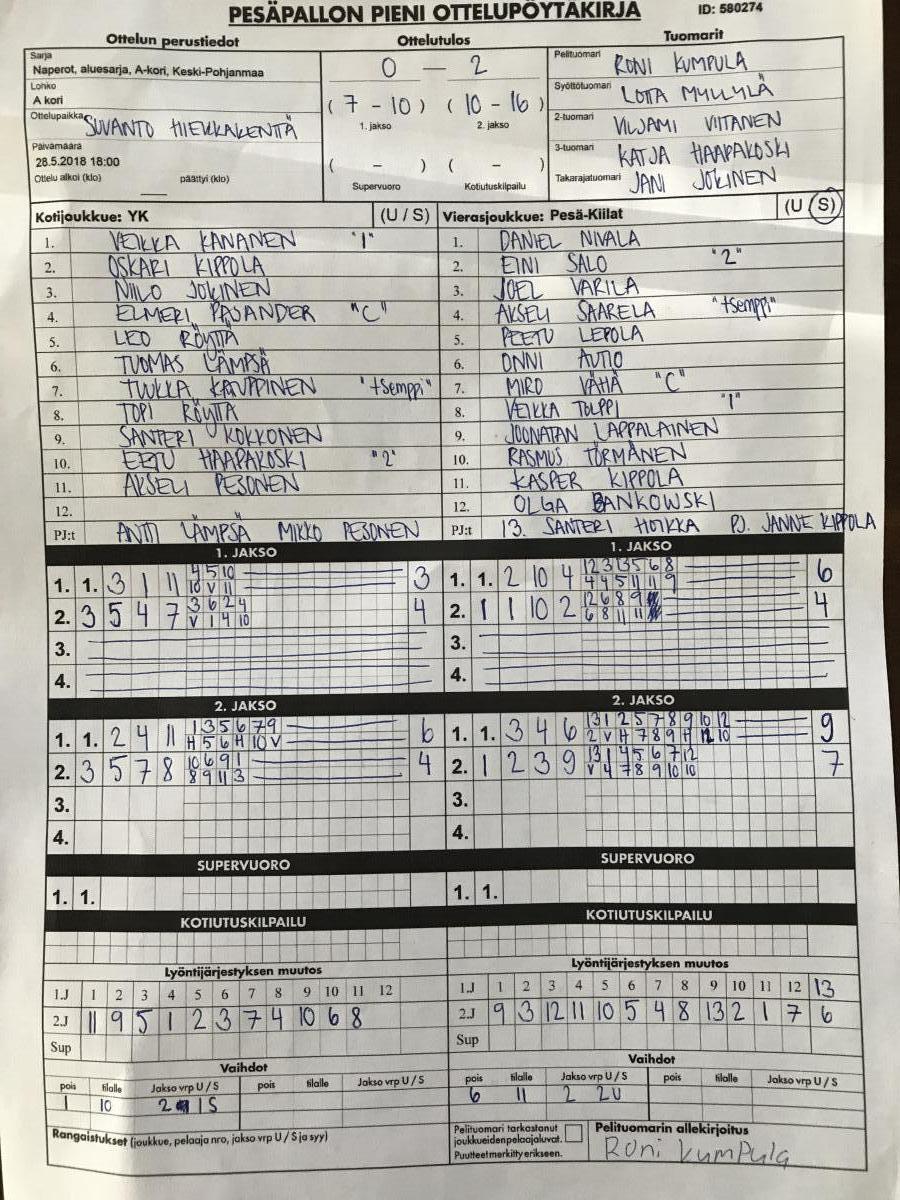 PESÄPALLON PIENI OTTELUPÖYTÄKIRJA
ID: 580274
Ottelun perustiedot
Sarja
Naperot, aluesarja, A-kori, Keski-Pohjanmaa
Lohko
A kori
Ottelupaikka SUVANTO HIEKKAKENTTÄ
Päivämäärä
28.5.2018 18:00
Ottelu alkoi (klo) päättyi (klo)
Ottelutulos
0 — 2
( 7 - 10 ) ( 10 - 16 )
1. jakso 2. jakso
( - ) ( - )
Supervuoro Kotiutuskilpailu
Tuomarit
Pelituomari RONI KUMPULA
Syöttötuomari LOTTA MYLLYLÄ
2-tuomari VILJAMI VIITANEN
3-tuomari KATJA HAAPAKOSKI
Takarajatuomari JANI JOKINEN
Kotijoukkue: YK (U / S)
1. VEIKKA KANANEN "1"
2. OSKARI KIPPOLA
3. NIILO JOKINEN
4. ELMERI PASANDER "C"
5. LEO RÖYTTÄ
6. TUOMAS LÄMPSÄ
7. TUUKKA KAUPPINEN "tsemppi"
8. TOPI RÖYTTÄ
9. SANTERI KOKKONEN
10. EETU HAAPAKOSKI "2"
11. AKSELI PESONEN
12.
PJ:t ANTTI LÄMPSÄ MIKKO PESONEN
Vierasjoukkue: Pesä-Kiilat (U / S)
1. DANIEL NIVALA
2. EINI SALO "2"
3. JOEL VARILA
4. AKSELI SAARELA "tsemppi"
5. PEETU LEPOLA
6. ONNI AUTIO
7. MIRO VÄHÄ "C"
8. VEIKKA TOLPPI "1"
9. JOONATAN LAPPALAINEN
10. RASMUS TÖRMÄNEN
11. KASPER KIPPOLA
12. OLGA BANKOWSKI
PJ:t 13. SANTERI HOIKKA PJ. JANNE KIPPOLA
1. JAKSO
1. 1. 3 1 11 4 5 10 3
10 V 11
2. 3 5 4 7 3 6 2 4 4
V 1 4 10
3.
4.
1. JAKSO
1. 1. 2 10 4 12 3 13 5 6 8 6
4 4 5 11 11 9
2. 1 1 10 2 12 6 8 9 4
6 8 11 11
3.
4.
2. JAKSO
1. 1. 2 4 11 1 3 5 6 7 9 6
H 5 6 H 10 V
2. 3 5 7 8 10 6 9 1 4
8 9 11 3
3.
4.
2. JAKSO
1. 1. 3 4 6 13 1 2 5 7 8 9 10 12 9
2 V H 7 8 9 H 12 10
2. 1 2 3 9 13 1 4 5 6 7 12 7
V 4 7 8 9 10 10
3.
4.
SUPERVUORO
1. 1.
SUPERVUORO
1. 1.
KOTIUTUSKILPAILU
KOTIUTUSKILPAILU
Lyöntijärjestyksen muutos
1.J 1 2 3 4 5 6 7 8 9 10 11 12
2.J 11 9 5 1 2 3 7 4 10 6 8
Sup
Lyöntijärjestyksen muutos
1.J 1 2 3 4 5 6 7 8 9 10 11 12 13
2.J 9 3 12 11 10 5 4 8 13 2 1 7 6
Sup
Vaihdot
pois tilalle Jakso vrp U / S pois tilalle Jakso vrp U / S
1 10 2 1S
Vaihdot
pois tilalle Jakso vrp U / S pois tilalle Jakso vrp U / S
6 11 2 2U
Rangaistukset (joukkue, pelaaja nro, jakso vrp U / S ja syy)
Pelituomari tarkastanut
joukkueidenpelaajaluvat.
Puutteet merkitty erikseen.
Pelituomarin allekirjoitus
Roni Kumpula